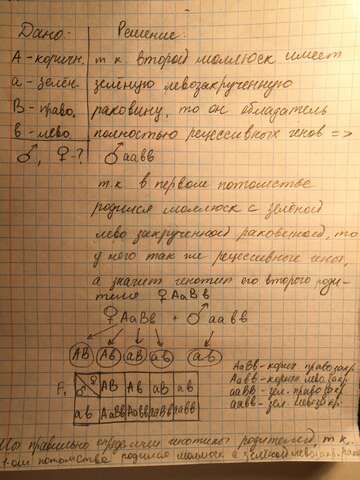 Дано: Решение:
А-коричн. т к второй моллюск имеет
а-зелён. зелёную левозакрученную
В-право. раковину, то он обладатель
в-лево. полностью рецессивных генов =>
♂, ♀-? ♂ аавв
т.к в первом потомстве
родился моллюск с зелёной
лево закрученной раковиной, то
у него так же рецессивные
а значит генотип его второго роди-
теля ♀АаВв
♀АаВв + ♂аавв
АВ Ав аВ ав ав
F₁ ♂ ♀ АВ Ав аВ ав
ав АаВв Аавв ааВв аавв
АаВв-корич правозакр.
Аавв-коричн лево закр.
ааВв-зел. правозакр.
аавв-зел. левозакр.
Мы правильно определили генотипы родителей, т к
потомства родился моллюск с зелёной